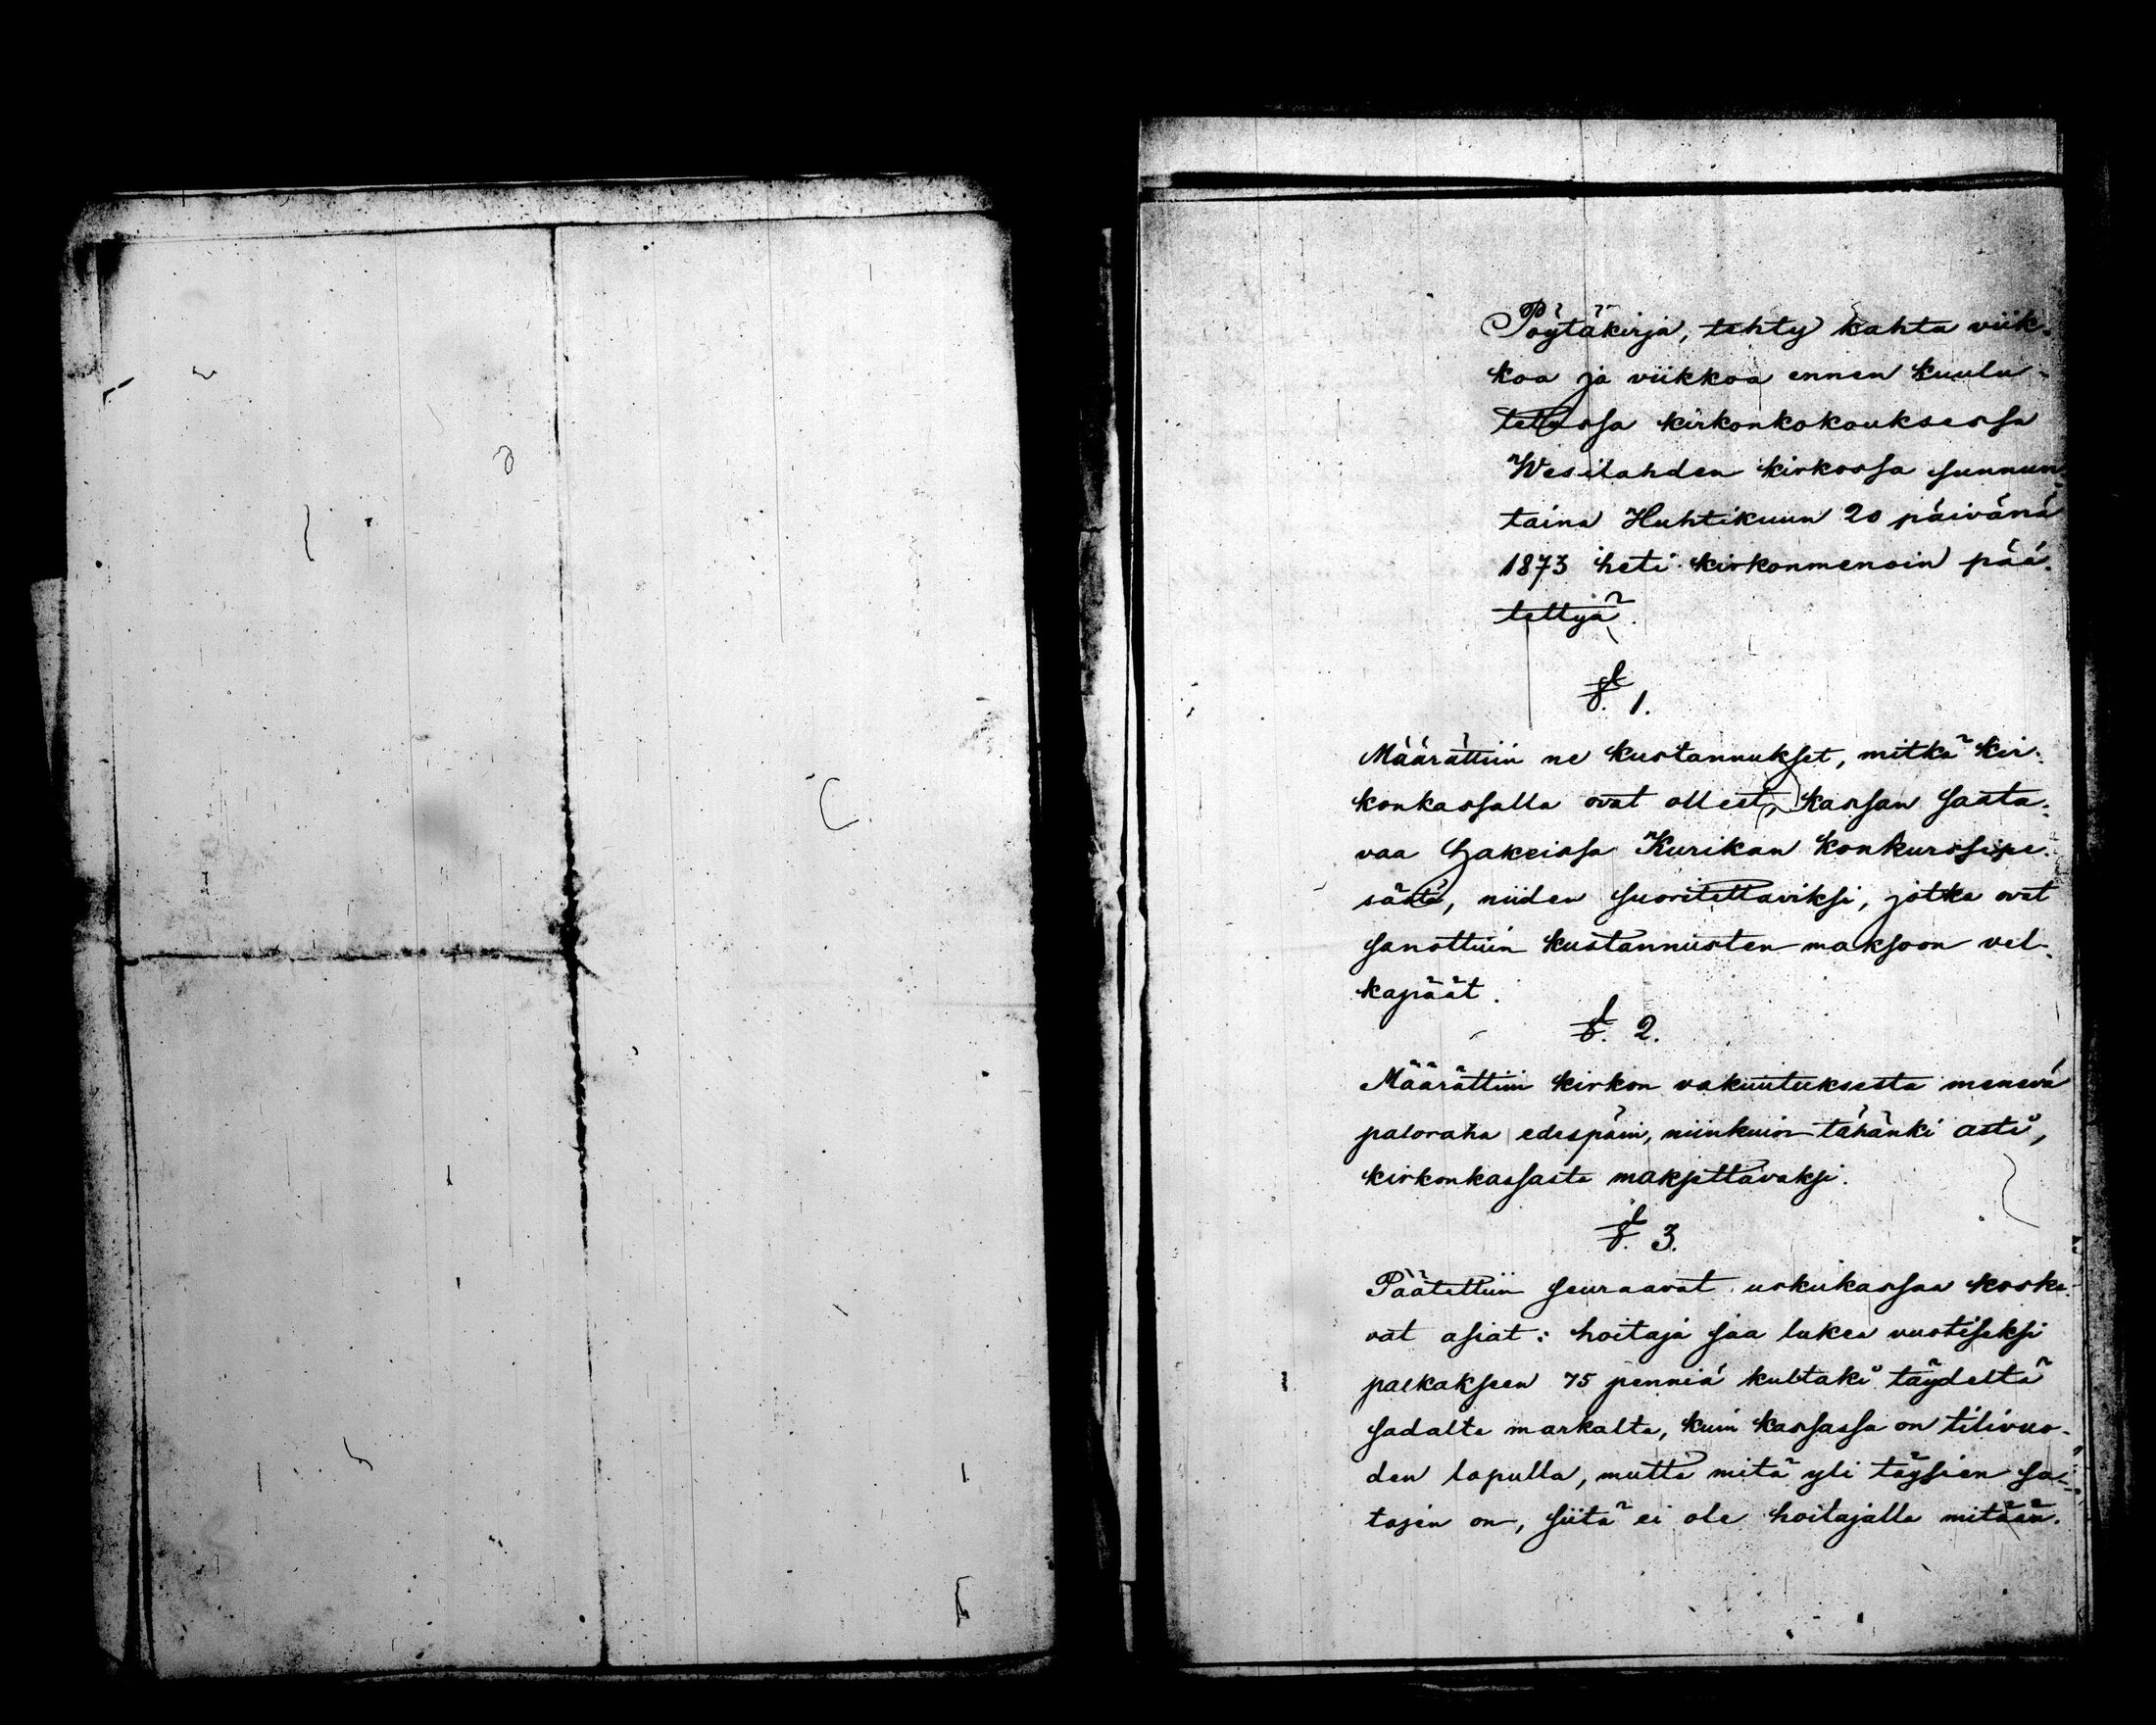 Pöytäkirja, tehty kahta viik-
koa ja viikkoa ennen kuulu-
tetussa kirkonkokouksessa
Wesilahden kirkossa sunnun-
taina Huhtikuun 20 päivänä
1873 heti kirkonmenoin pää-
tettyä.
§. 1.
Määrättiin ne kustannukset, mitkä kir-
konkassalla ovat olleet, kassan saata-
vaa hakeissa Kurikan konkurssipe-
sästä, niiden suoritettaviksi, jotka ovat
sanottuin kustannusten maksoon vel-
kapäät.
§. 2.
Määrättiin kirkon vakuutuksesta menevä
paloraha edespäin, niinkuin tähänki asti,
kirkonkassasta maksettavaksi.
§. 3.
Päätettiin seuraavat uskukassaa koske-
vat asiat: hoitaja saa lukea vuotiseksi
palkakseen 75 penniä kultaki täydeltä
sadalta markalta, kuin kassassa on tilivuo-
den lopulla, mutta mitä yli täysien sa-
tojen on, siitä ei ole hoitajalla mitään.